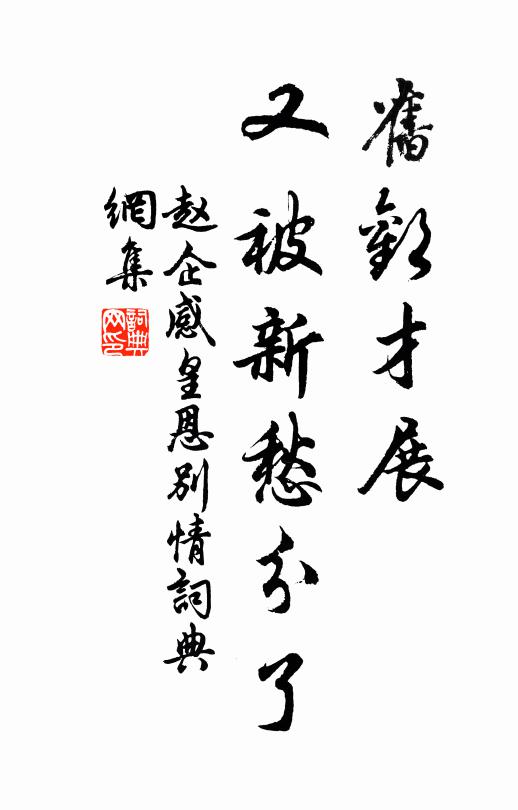 舊歡才展
又被新愁分了
赵企感皇恩别情詞典
網集
詞典
网印